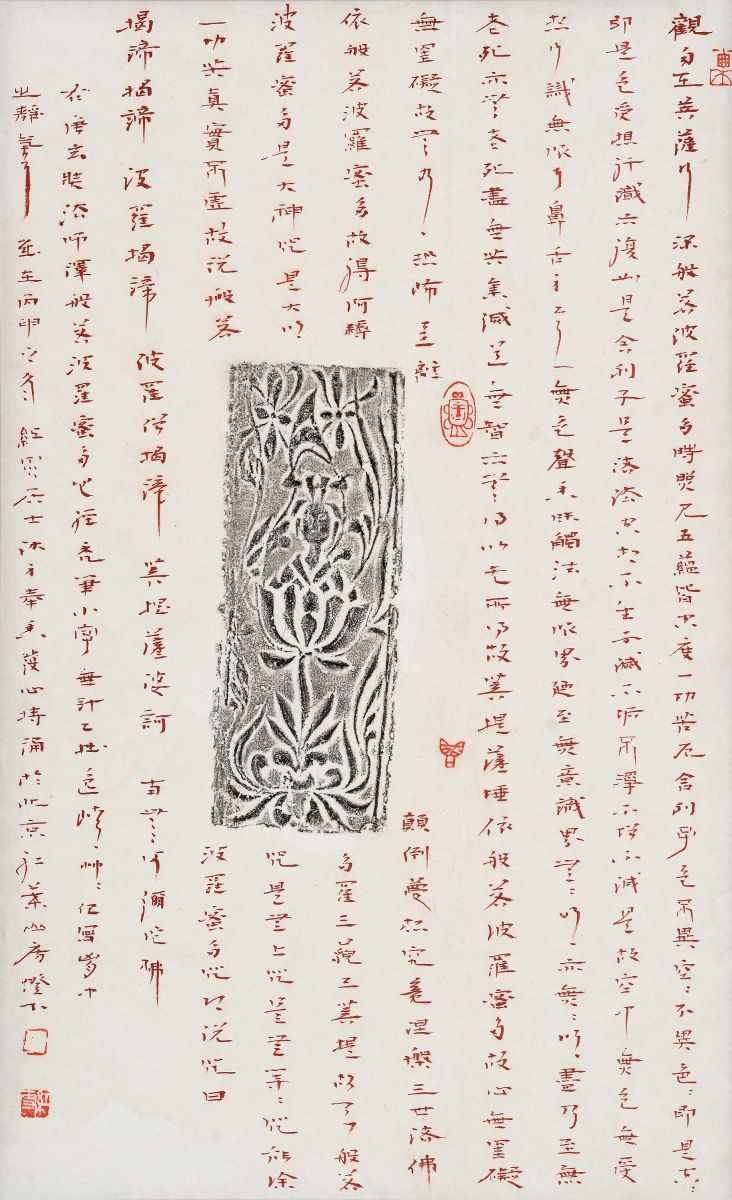 觀自在菩薩行深般若波羅蜜多時照見五蘊皆空度一切苦厄舍利子色不異空〻不異色〻即是空〻
即是色受想行識亦復如是舍利子是諸法空相不生不滅不垢不淨不增不減是故空中無色無受
想行識無眼耳鼻舌身意無色聲香味觸法無眼界乃至無意識界無〻明亦無〻明盡乃至無
老死亦無老死盡無苦集滅道無智亦無得以無所得故菩提薩埵依般若波羅蜜多故心無罣礙
無罣礙故無有恐怖遠離顛倒夢想究竟涅槃三世諸佛
依般若波羅蜜多故得阿耨多羅三藐三菩提故知般若
波羅蜜多是大神咒是大明咒是無上咒是無等〻咒能除
一切苦真實不虛故說般若波羅蜜多咒即說咒曰
揭諦揭諦 波羅揭諦 波羅僧揭諦 菩提薩婆訶 南無阿彌陀佛
右唐玄奘法師譯般若波羅蜜多心經禿筆小字無計工拙
之靜氣 歲在丙申之冬 居士沐手奉香發心持誦於北京紅葉山房燈下